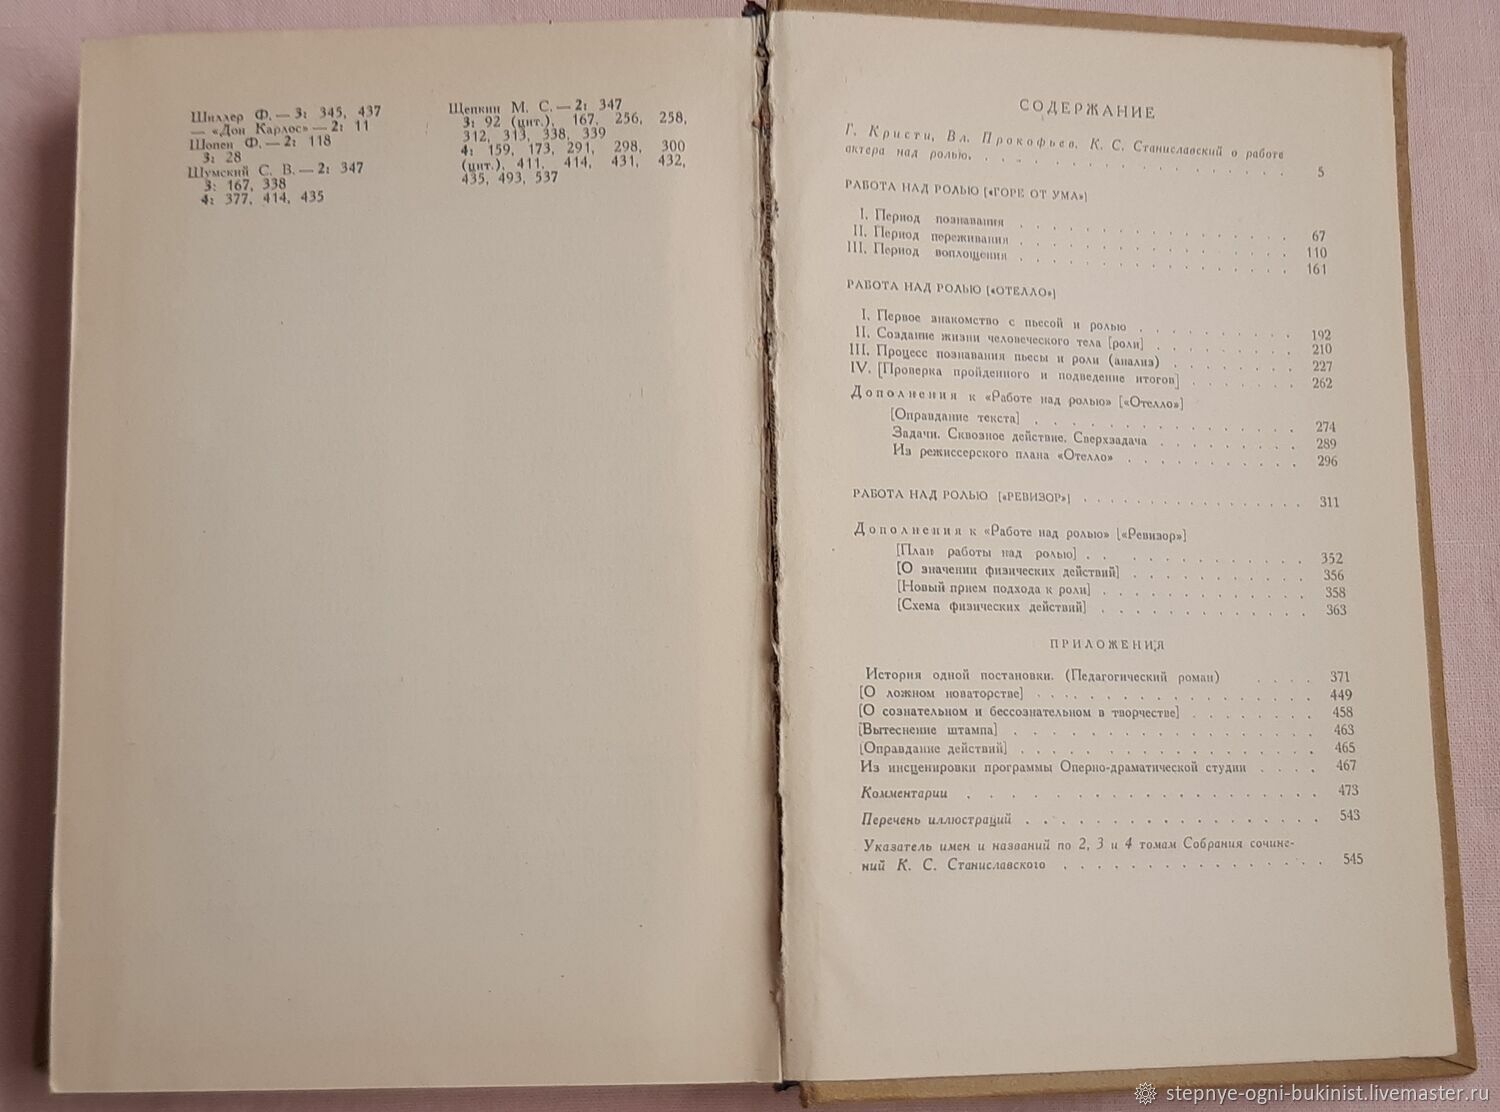 Шиллер Ф. — 3: 345, 437
— «Дон Карлос» — 2: 11
Шопен Ф. — 2: 118
3: 28
Шумский С. В. — 2: 347
3: 167, 338
4: 377, 414, 435
Щепкин М. С. — 2: 347
3: 92 (цит.), 167, 256, 258,
312, 313, 338, 339
4: 159, 173, 291, 298, 300
(цит.), 411, 414, 431, 432,
435, 493, 537
СОДЕРЖАНИЕ
Г. Кристи, Вл. Прокофьев. К. С. Станиславский о работе
актера над ролью. . . . . . . . . . . . . . . 5
РАБОТА НАД РОЛЬЮ [«ГОРЕ ОТ УМА»]
I. Период познавания . . . . . . . . . . . . . . . 67
II. Период переживания . . . . . . . . . . . . . . . 110
III. Период воплощения . . . . . . . . . . . . . . . 161
РАБОТА НАД РОЛЬЮ [«ОТЕЛЛО»]
I. Первое знакомство с пьесой и ролью . . . . . . . . 192
II. Создание жизни человеческого тела [роли] . . . . . . . 210
III. Процесс познавания пьесы и роли (анализ) . . . . . . 227
IV. [Проверка пройденного и подведение итогов] . . . . . 262
Дополнения к «Работе над ролью» [«Отелло»]
[Оправдание текста] . . . . . . . . . . . . . 274
Задачи. Сквозное действие. Сверхзадача . . . . . . . 289
Из режиссерского плана «Отелло» . . . . . . . . . 296
РАБОТА НАД РОЛЬЮ [«РЕВИЗОР»] . . . . . . . . . . . . 311
Дополнения к «Работе над ролью» [«Ревизор»]
[План работы над ролью] . . . . . . . . . . . 352
[О значении физических действий] . . . . . . . . . 356
[Новый прием подхода к роли] . . . . . . . . . . 358
[Схема физических действий] . . . . . . . . . . 363
ПРИЛОЖЕНИЯ
История одной постановки. (Педагогический роман) . . . . 371
[О ложном новаторстве] . . . . . . . . . . . . . . 449
[О сознательном и бессознательном в творчестве] . . . . . . 458
[Вытеснение штампа] . . . . . . . . . . . . . . . 463
[Оправдание действий] . . . . . . . . . . . . . . 465
Из инсценировки программы Оперно-драматической студии . . . . 467
Комментарии . . . . . . . . . . . . . . . . . 473
Перечень иллюстраций . . . . . . . . . . . . . . 543
Указатель имен и названий по 2, 3 и 4 томам Собрания сочине-
ний К. С. Станиславского . . . . . . . . . . . . . 545
stepnye-ogni-bukinist.livemaster.ru